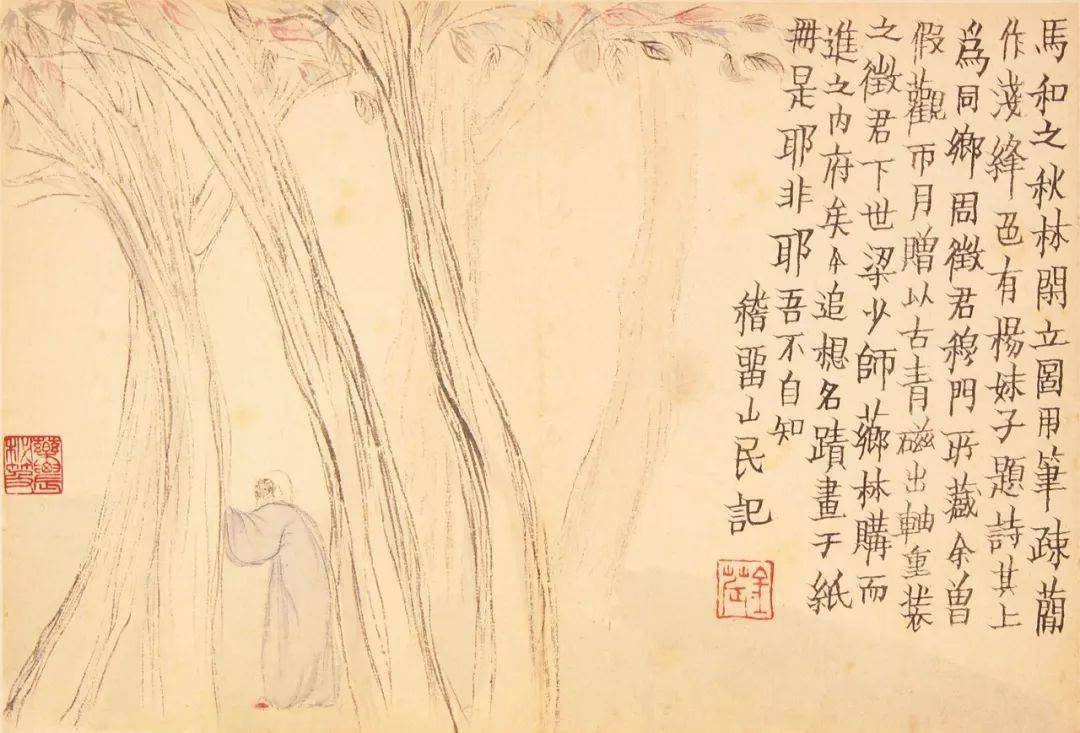 馬和之秋林閒立圖用筆疎蕳
作淺絳色有楊妹子題詩其上
爲同鄉周徵君穆門所藏余曾
假觀帀月贈以古青磁出軸重裝
之徵君下世梁少師薌林購而
進之内府矣今追想名蹟畫于紙
冊是耶非耶吾不自知
稽畱山民記
金吉金